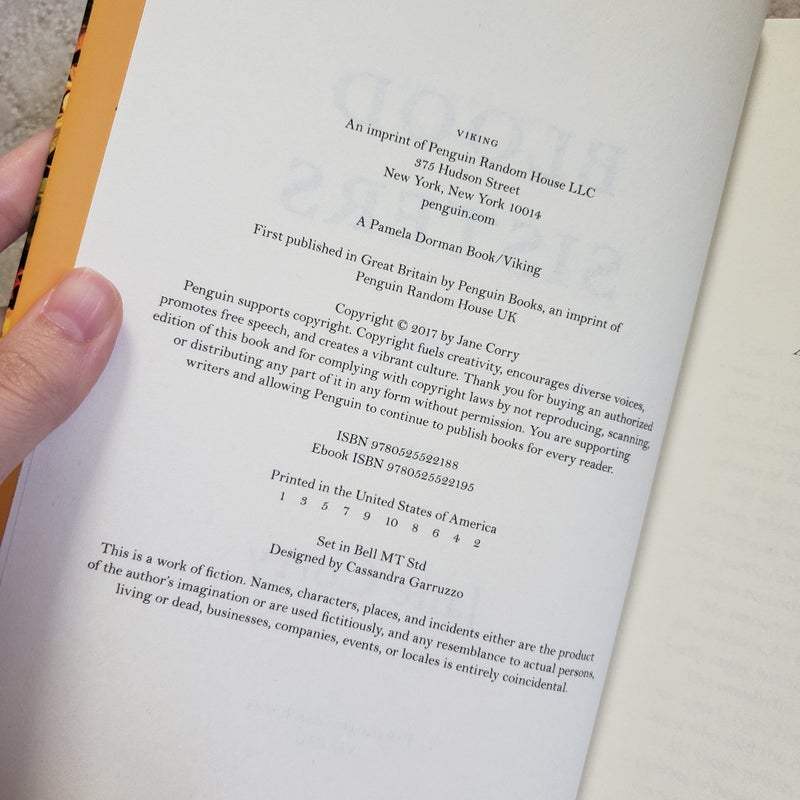 VIKING
An imprint of Penguin Random House LLC
375 Hudson Street
New York, New York 10014
penguin.com
A Pamela Dorman Book/Viking
First published in Great Britain by Penguin Books, an imprint of
Penguin Random House UK
Copyright © 2017 by Jane Corry
Penguin supports copyright. Copyright fuels creativity, encourages diverse voices,
promotes free speech, and creates a vibrant culture. Thank you for buying an authorized
edition of this book and for complying with copyright laws by not reproducing, scanning,
or distributing any part of it in any form without permission. You are supporting
writers and allowing Penguin to continue to publish books for every reader.
ISBN 9780525522188
Ebook ISBN 9780525522195
Printed in the United States of America
1 3 5 7 9 10 8 6 4 2
Set in Bell MT Std
Designed by Cassandra Garruzzo
This is a work of fiction. Names, characters, places, and incidents either are the product
of the author's imagination or are used fictitiously, and any resemblance to actual persons,
living or dead, businesses, companies, events, or locales is entirely coincidental.
BLOOD
SISTERS